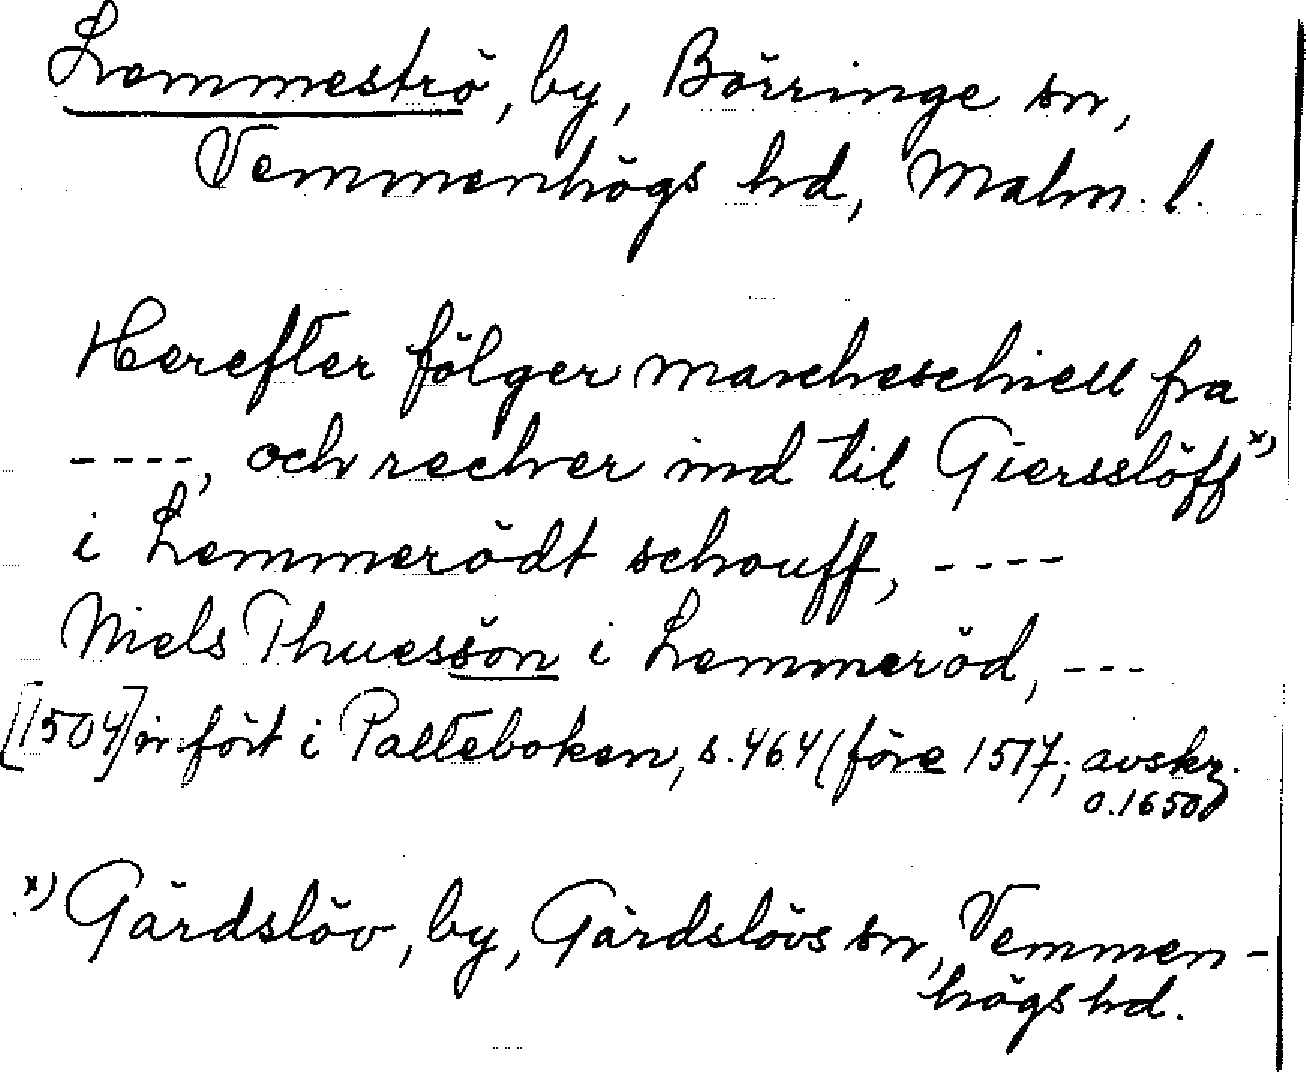 Lemmeströ, by, Börringe sn,
Vemmenhögs hd, Malm. l.
Herefter fölger marcheschiell fra
----, och recher ind til Giersslöff x)
i Lemmerödt schouff, ----
Niels Thuessön i Lemmeröd, ---
[1504] infört i Palteboken, s. 464 (före 1517; avskr.
o. 1650)
x) Gärdslöv, by, Gärdslövs sn, Vemmen-
högs hd.